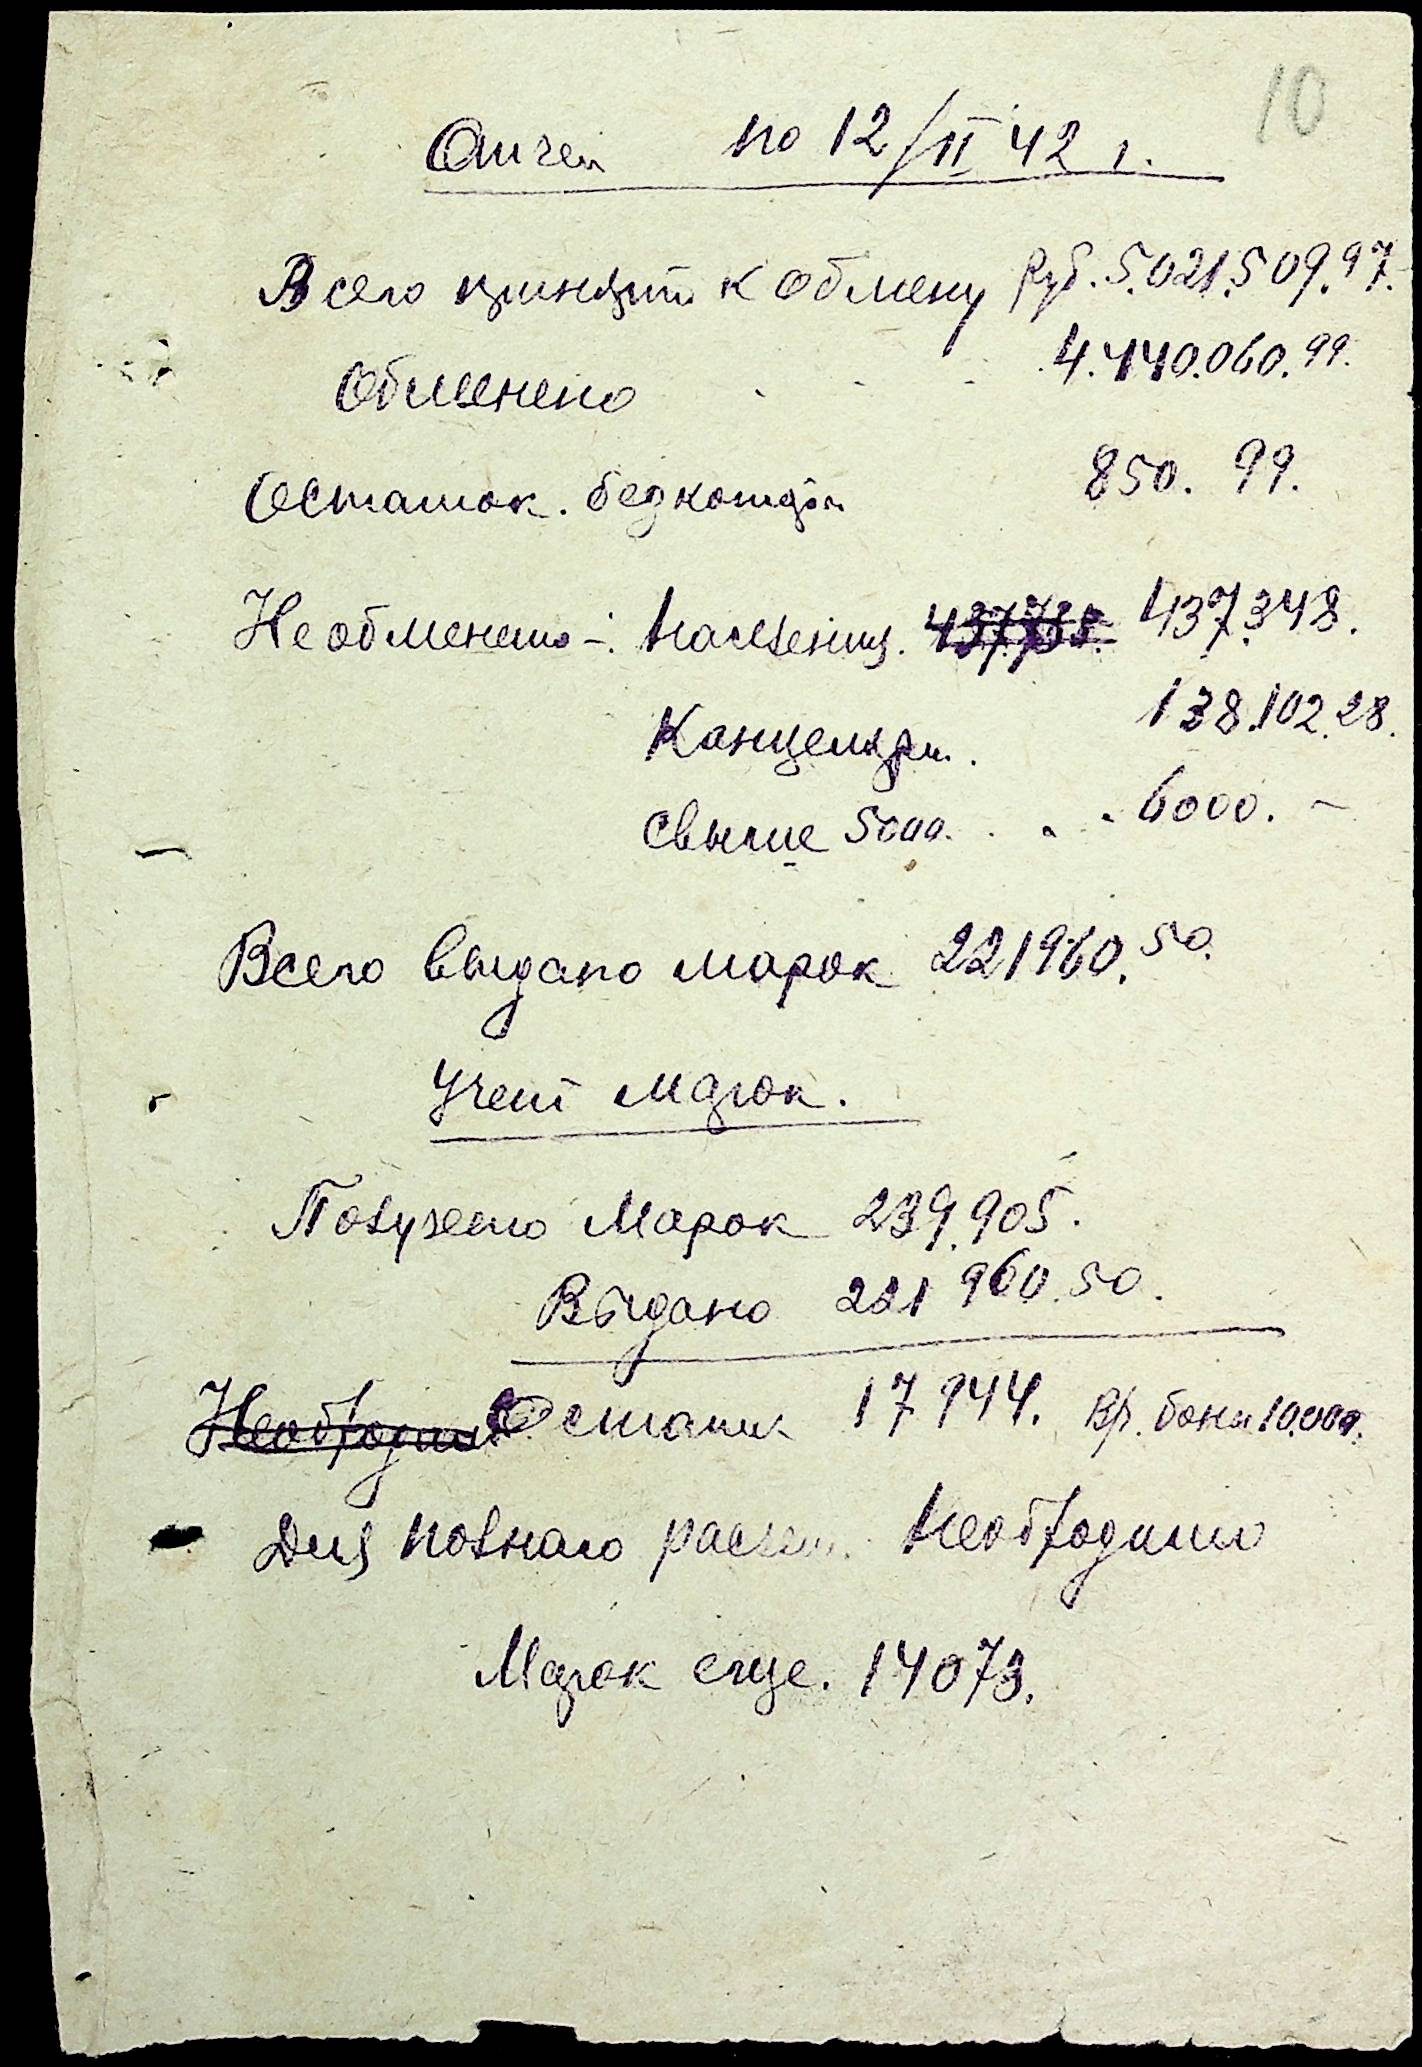 10
Отчет по 12/II 42 г.
Всего принято к обмену Руб. 5.021.509.97.
Обменено 4.440.060.99.
Остаток. 850. 99.
Не обменено -: населению. 437.348.
Канцеляри. 138.102.28.
Свыше 5000. . . . 6000. –
Всего выдано марок 221960.50.
Учет марок.
Получено Марок 239.905.
Выдано 221 960.50.
Остаток 17 944. Вр. боны 10.000.
Для полнаго расчет. необходимо
Марок еще. 14073.